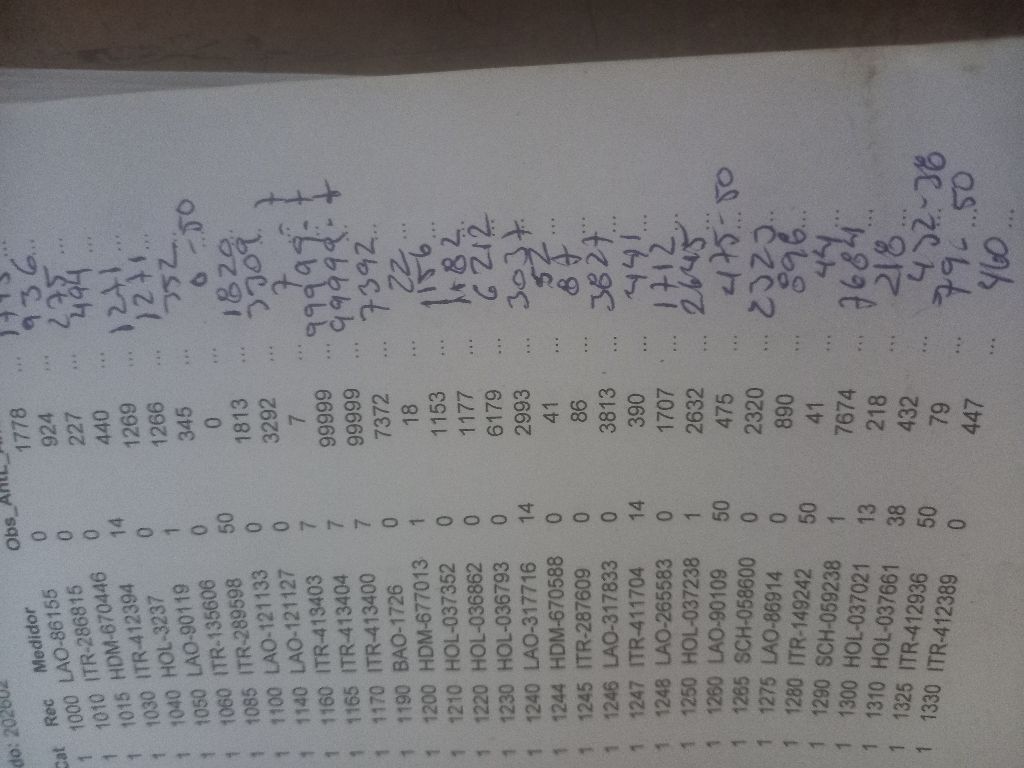 do: 202602
Cat Rec Medidor
1 1000 LAO-86155 0 1778 ...
1 1010 ITR-286815 0 924 ... 936
1 1015 HDM-670446 0 227 ... 275
1 1030 ITR-412394 14 440 ... 494
1 1040 HOL-3237 0 1269 ... 1271
1 1050 LAO-90119 1 1266 ... 1271
1 1060 ITR-135606 0 345 ... 352
1 1085 ITR-289598 50 0 ... 0 - 50
1 1100 LAO-121133 0 1813 ... 1829
1 1140 LAO-121127 0 3292 ... 3309
1 1160 ITR-413403 7 7 ... 7 7
1 1165 ITR-413404 7 99999 ... 99999 - 7
1 1170 ITR-413400 7 99999 ... 99999 - 7
1 1190 BAO-1726 0 7372 ... 7392
1 1200 HDM-677013 1 18 ... 22
1 1210 HOL-037352 0 1153 ... 1156
1 1220 HOL-036862 0 1177 ... 1182
1 1230 HOL-036793 0 6179 ... 6212
1 1240 LAO-317716 14 2993 ... 3037
1 1244 HDM-670588 0 41 ... 52
1 1245 ITR-287609 0 86 ... 87
1 1246 LAO-317833 0 3813 ... 3827
1 1247 ITR-411704 14 390 ... 441
1 1248 LAO-265583 0 1707 ... 1712
1 1250 HOL-037238 1 2632 ... 2645
1 1260 LAO-90109 50 475 ... 475 - 50
1 1265 SCH-058600 0 2320 ... 2323
1 1275 LAO-86914 0 890 ... 896
1 1280 ITR-149242 50 41 ... 44
1 1290 SCH-059238 1 7674 ... 7684
1 1300 HOL-037021 13 218 ... 218
1 1310 HOL-037661 38 432 ... 432 - 38
1 1325 ITR-412936 50 79 ... 79 - 50
1 1330 ITR-412389 0 447 ... 460